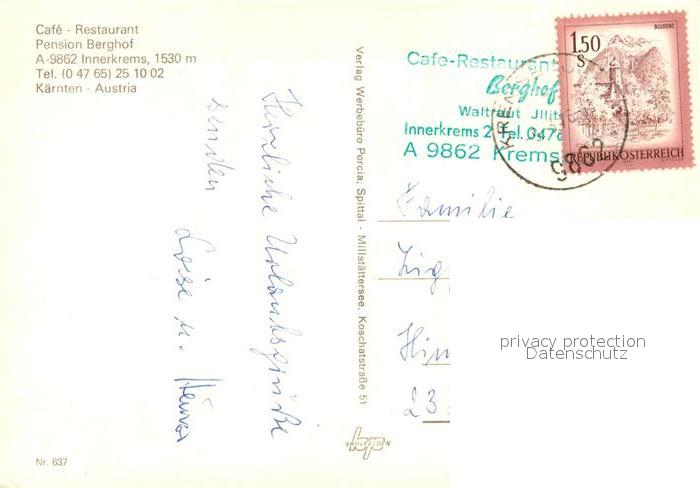 Café - Restaurant
Pension Berghof
A-9862 Innerkrems, 1530 m
Tel. (0 47 65) 25 10 02
Kärnten - Austria
Herzliche Urlaubsgrüße
senden
Luise u.
Nr. 637
Verlag Werbebüro Porcia, Spittal - Millstättersee, Koschatstraße 51
Cafe-Restaurant
Berghof
Waltraut
Innerkrems 2 Tel. 0476
A 9862 Krems
BLUDENZ
1.50
S
REPUBLIK ÖSTERREICH
9862
Familie
23
privacy protection
Datenschutz